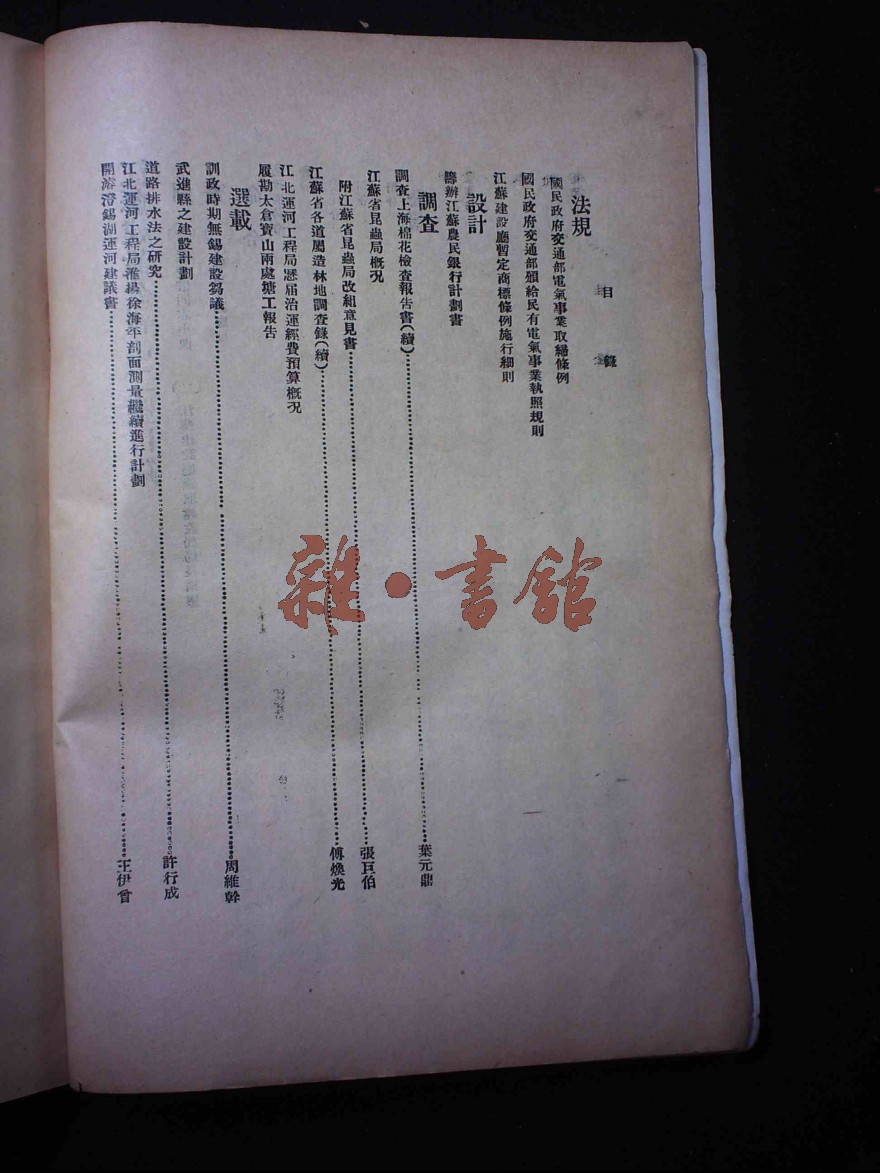 目錄
法規
國民政府交通部電氣事業取締條例
國民政府交通部頒給民有電氣事業執照規則
江蘇建設廳暫定商標條例施行細則
設計
籌辦江蘇農民銀行計劃書
調查
調查上海棉花檢查報告書(續)………葉元鼎
江蘇省昆蟲局概况
附江蘇省昆蟲局改組意見書………張巨伯
江蘇省各道屬造林地調查錄(續)………傅煥光
江北運河工程局歷屆治運經費預算概况
履勘太倉寶山兩處塘工報告
選載
訓政時期無錫建設芻議………周維幹
武進縣之建設計劃
道路排水法之研究………許行成
江北運河工程局淮揚徐海平剖面測量繼續進行計劃
開濬澄錫湖運河建議書………王伊曾
雜·書館